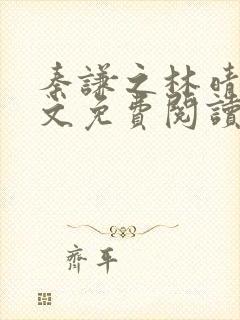 秦謙之林晴
文免費閱讀
齊平